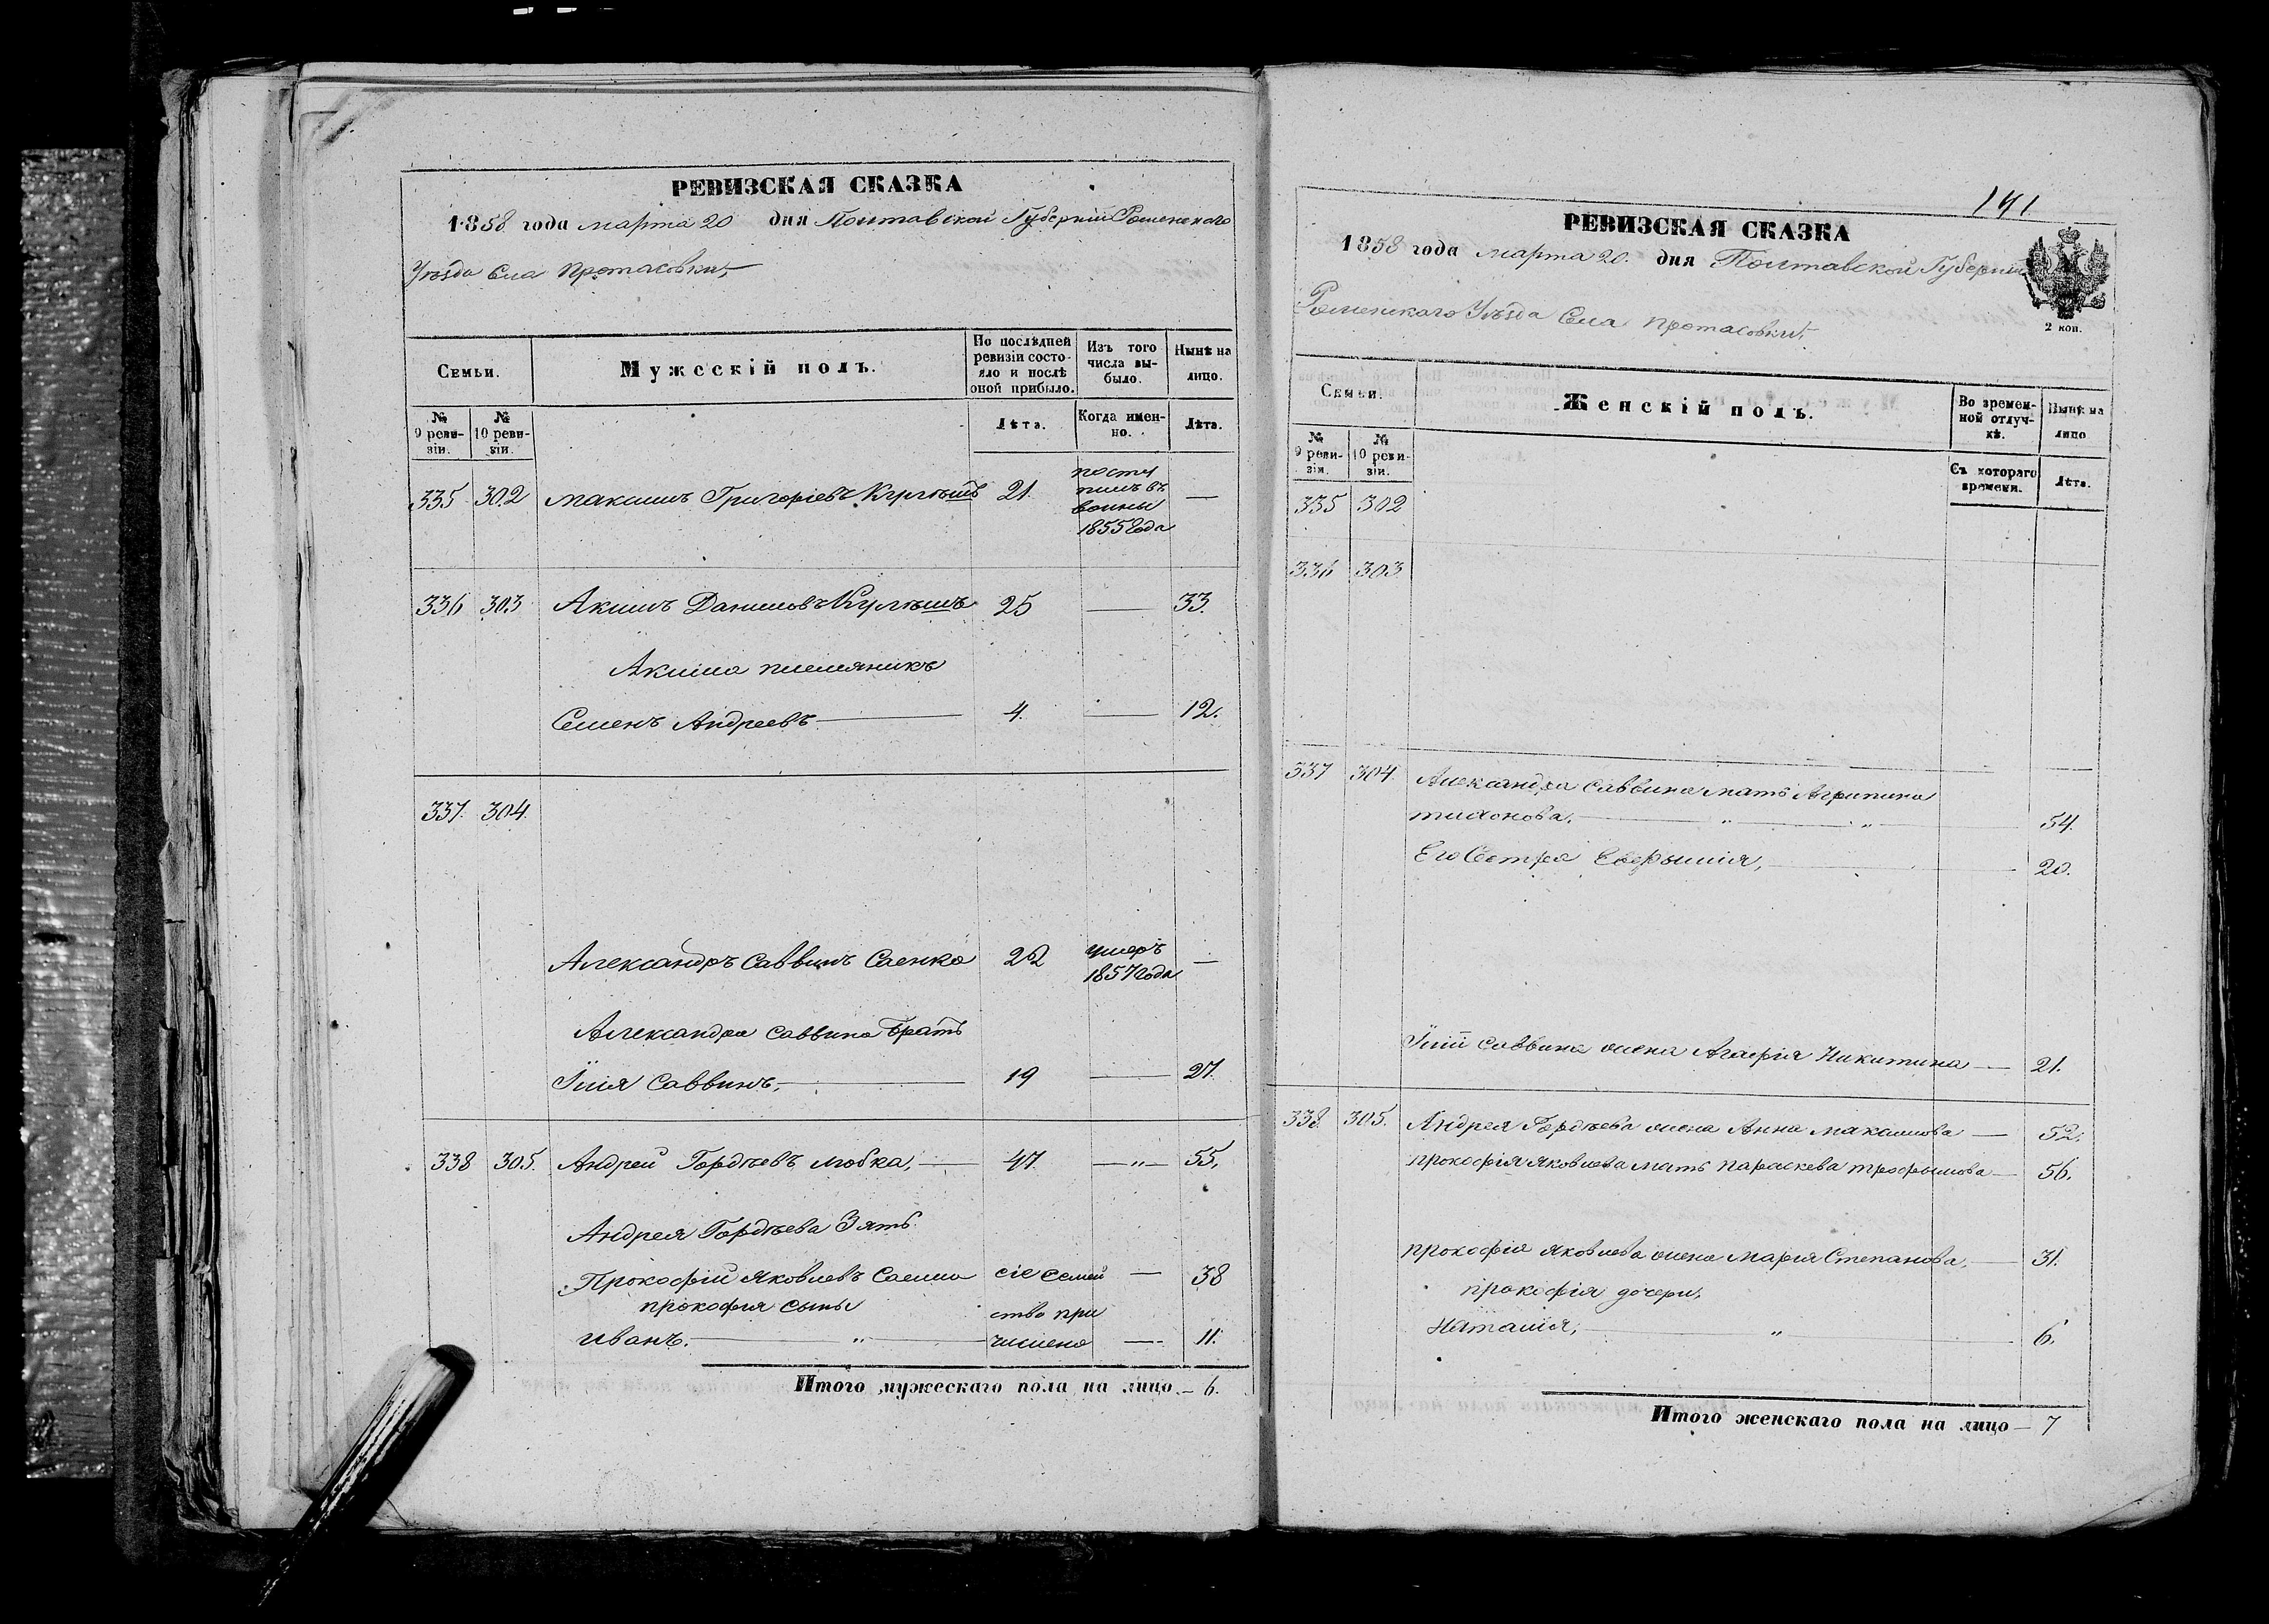 РЕВИЗСКАЯ СКАЗКА
1858 года марта 20 дня Полтавской Губерніи Роменскаго
Уѣзда Села Протасовки,
Семьи.
Мужескій полъ.
По послѣдней ревизіи состояло и послѣ оной прибыло.
Изъ того числа выбыло.
Нынѣ на лицо.
№ 9 ревизіи.
№ 10 ревизіи.
Лѣта.
Когда именно.
Лѣта.
335 302 Максимъ Григоріевъ Кулѣшъ 21. посту
пилъ въ —
воины
1855 года
336 303 Акимъ Даниловъ Кулѣшъ 25 — 33.
Акима племяникъ
Семенъ Андреевъ — 4. — 12.
337. 304.
Александръ Саввинъ Саенко 22 умеръ —
1857 года
Александра Саввина братъ
Илія Саввинъ, — 19 — 27.
338 305. Андрей Гордѣевъ Любка, — 47. —"— 55,
Андрея Гордѣева Зять
Прокофій Яковлевъ Саенко сіе семей — 38
прокофія сыны ство при
Иванъ. — " — числено — 11.
Итого мужескаго пола на лицо — 6.
191
РЕВИЗСКАЯ СКАЗКА
1858 года марта 20. дня Полтавской Губерніи
2 коп.
Роменскаго Уѣзда Села Протасовки,
Семьи.
Женскій полъ.
Во временной отлучкѣ.
Нынѣ на лицо
№ 9 ревизіи.
№ 10 ревизіи.
Съ котораго времени.
Лѣта.
335 302
336 303
337 304. Александра Саввина мать Агрипина
тихонова. — " — " — 54.
Его Сестра — 20.
Иліи Саввина жена Агафія Никитина — 21.
338. 305. Андрея Гордѣева жена Анна максимова — 52.
прокофія Яковлева мать параскева трофимова — 56.
прокофія Яковлева жена Марія Степанова, — 31.
прокофія дочери,
Наталія, — " — 6.
Итого женскаго пола на лицо — 7